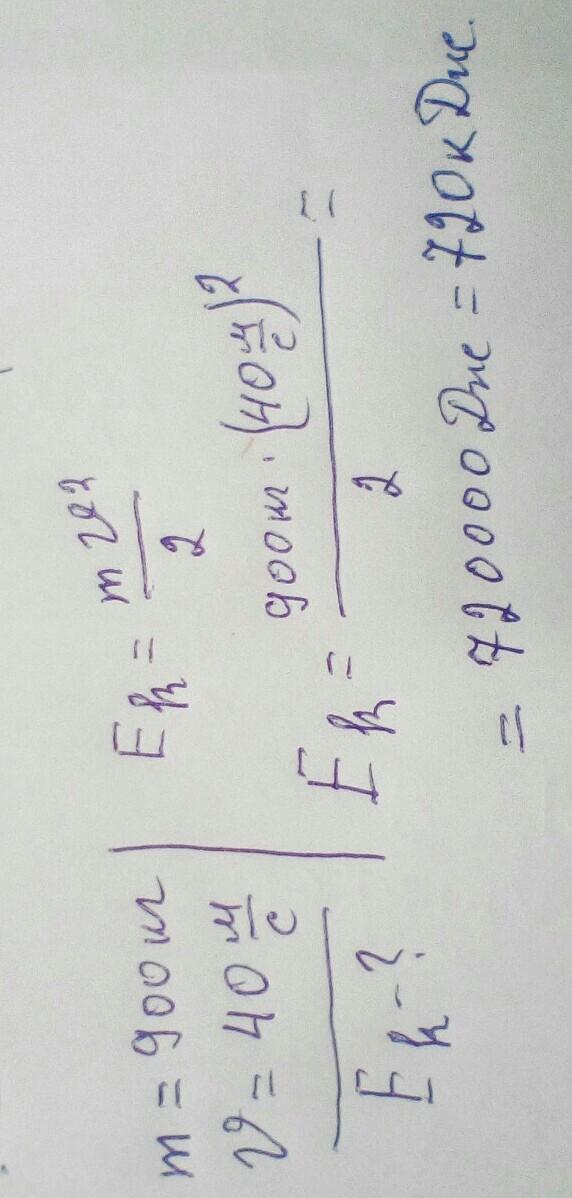 m = 900 кг
v = 40 м/с
Eк - ?
Eк = mv²/2
Eк = 900 кг · (40 м/с)²/2 =
= 720000 Дж = 720 кДж.